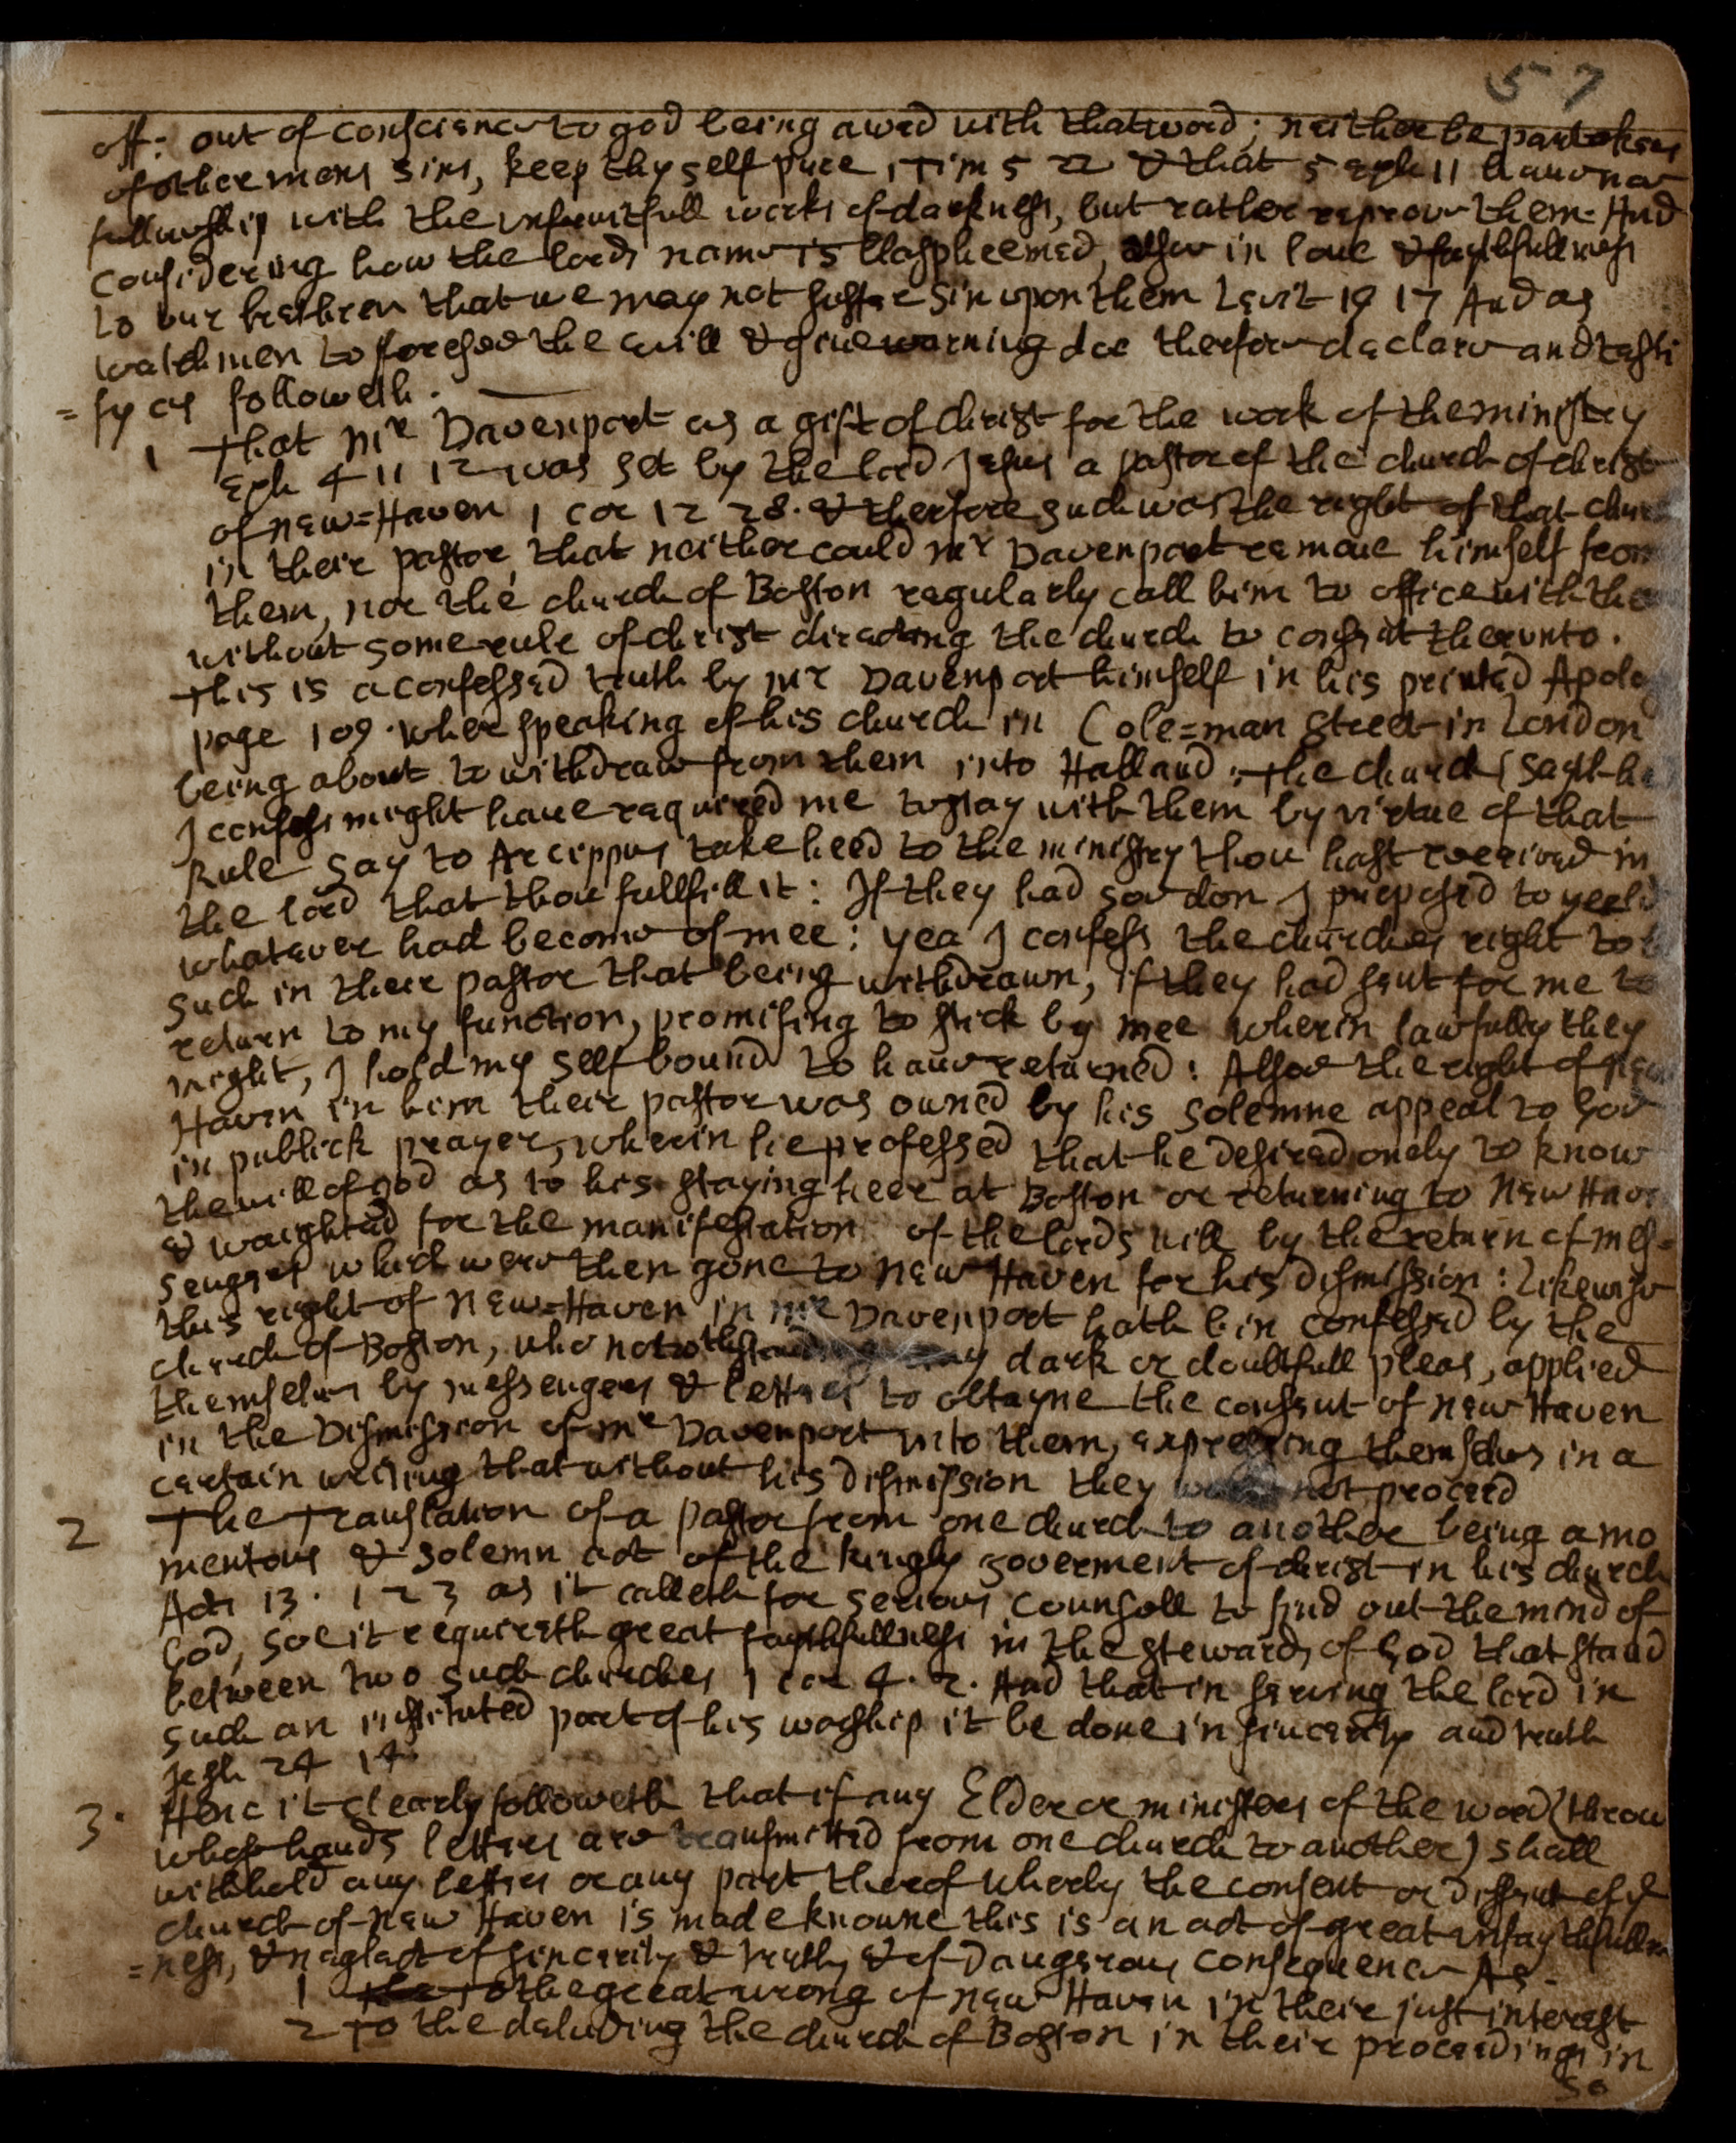 57
off: out of conscience to god being awed with that word; neither be partakers
of other mens sins, keep thy self pure 1 Tim 5 22 & that 5 Eph 11 haue noe
fellowship with the unfruitfull works of darkness, but rather reprove them: And
considering how the lords name is blaspheemed, alsoe in loue & faythfullness
to our brethren that we may not suffer sin upon them Levit 19 17 And as
watchmen to foresee the euill & giue warning doe therfore declare and testi
=fy as followeth.
1 That mr Davenport as a gift of christ for the work of the ministry
Eph 4 11 12 was set by the lord Jesus a pastor of the church of christ
of new=Haven 1 cor 12 28. & therfore such was the right of that chur
in their pastor, that neither could mr Davenport remoue himself from
them, nor the church of Boston regularly call him to office with the
without some rule of christ directing the church to consent therunto.
This is a confessed truth by mr Davenport himself in his printed Apolo
page 109. wher speaking of his church in Cole=man street in London
being about to withdraw from them into Holland: The church (sayth he
I confess might haue required me to stay with them by virtue of that
Rule say to Arcippus take heed to the ministry thou hast received in
the lord that thou fullfill it: If they had soe don I purposed to yeeld
whatever had become of mee: yea I confess the churches right to
such in their pastor that being withdrawn, if they had sent for me to
return to my function, promising to stick by mee wherin lawfully they
might, I hold my self bound to haue returned: Alsoe the right of new
Haven in him their pastor was owned by his solemne appeal to God
in publick prayer, wherin he professed that he desired onely to know
the will of god as to his staying heer at Boston or returning to New Hav
& waighted for the manifestation of the lords will by the return of mes=
sengers which were then gone to new Haven for his dismission: likewise
this right of new=Haven in mr Davenport hath bin confessed by the
church of Boston, who notwithstanding any dark or doubtfull pleas, applied
themselues by messengers & letters to obtayne the consent of new Haven
in the Dismission of mr Davenport unto them, expressing themselues in a
certain writing that without his dismission they would not proceed
2 The Translation of a pastor from one church to another being a mo
mentous & solemn act of the kingly goverment of christ in his church
Acts 13. 1 2 3 as it calleth for serious counsell to find out the mind of
God, soe it requireth great faythfullness in the stewards of God that stand
between two such churches 1 cor 4. 2. And that in serving the lord in
such an instituted part of his worship it be done in sincerity and truth
Josh 24 14.
3. Henc it clearly followeth that if any Elder or ministers of the word (throu
whose hands letters are transmitted from one church to another) shall
withhold any letters or any part therof wherby the consent or dissent of ye
church of new Haven is made knowne this is an act of great unfaythfulln
=ness, & neglect of sincerity & truth, & of Dangerous consequence As.
1 To the great wrong of new Haven in their just interest
2 To the deluding the church of Boston in their proceedings in
so